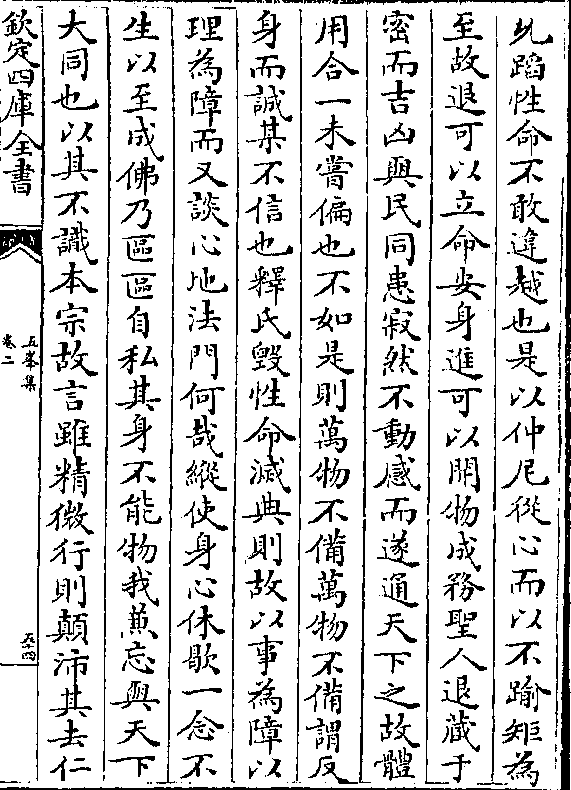 凡蹈性命不敢違越也是以仲尼從心而以不踰矩為
至故退可以立命安身進可以開物成務聖人退藏于
密而吉凶與民同患寂然不動感而遂通天下之故體
用合一未嘗偏也不如是則萬物不備萬物不備謂反
身而誠某不信也釋氏毀性命滅典則故以事為障以
理為障而又談心地法門何哉縱使身心休歇一念不
生以至成佛乃區區自私其身不能物我兼忘與天下
大同也以其不識本宗故言雖精微行則顛沛其去仁
欽定四庫全書
五峯集
卷二
五十四